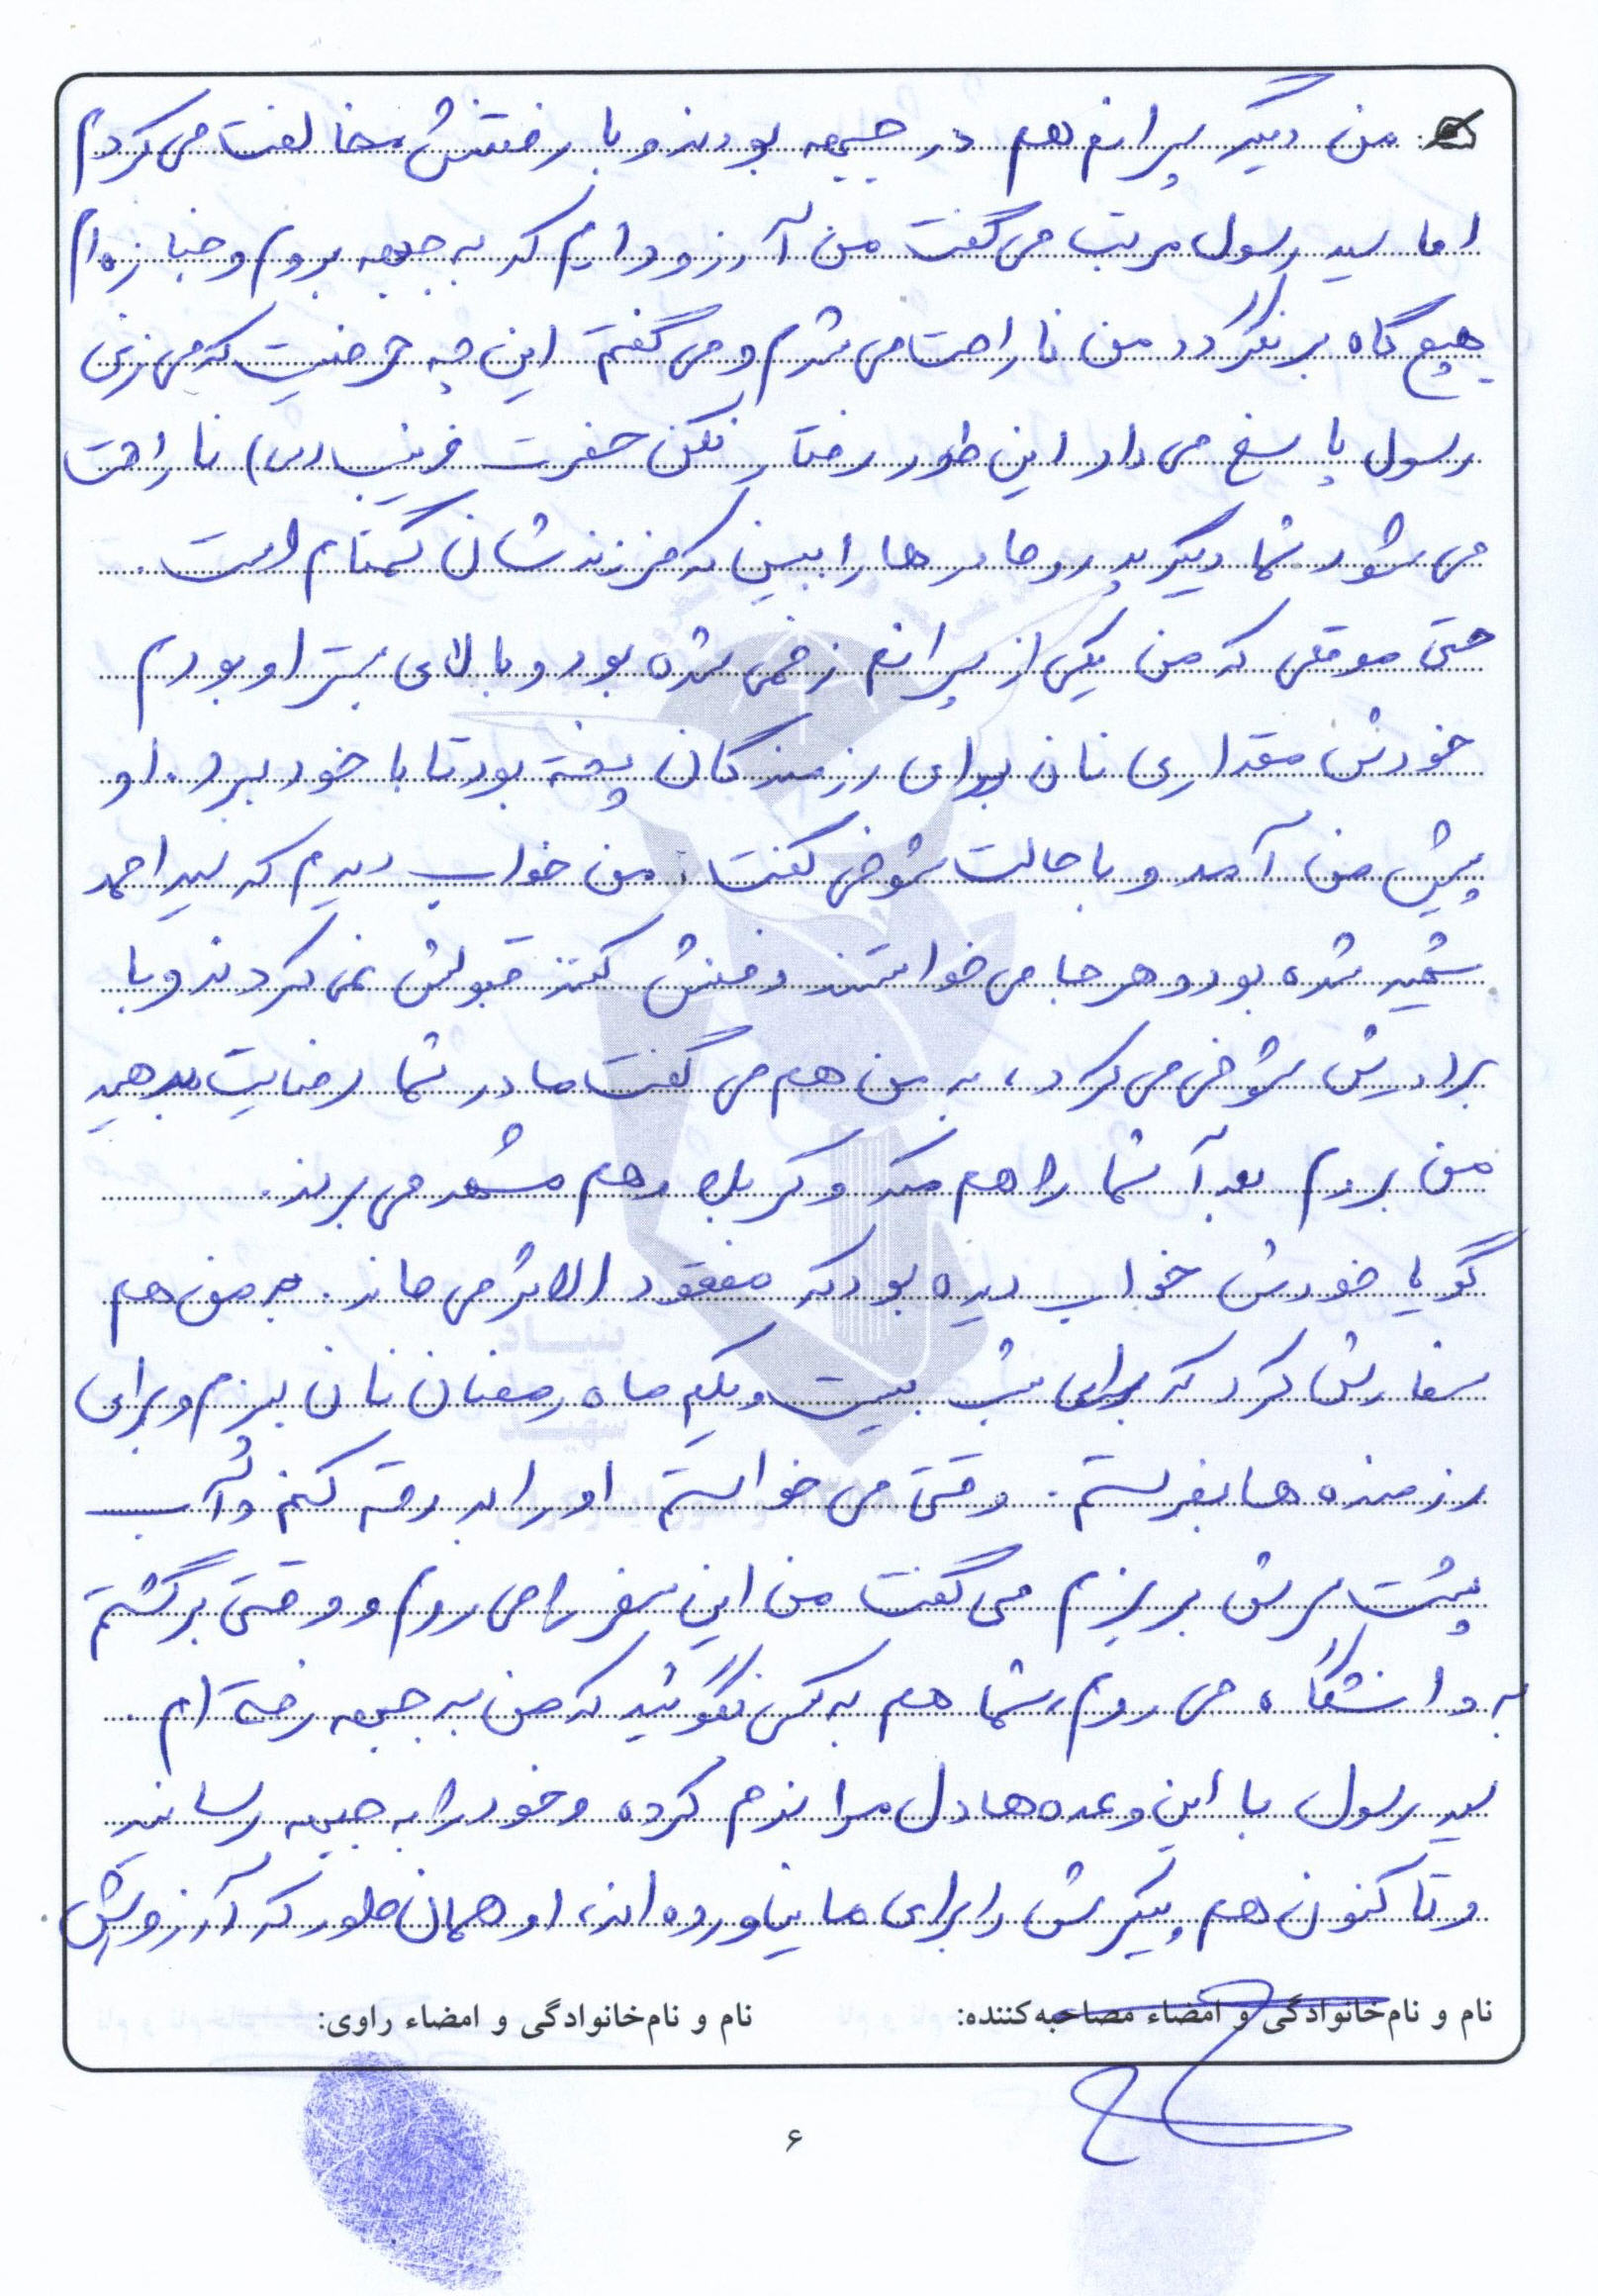 من دیگر پسرانم هم در جبهه بودند و با رفتنش مخالفت می کردم
اما سید رسول مرتب می گفت من آرزو دارم که به جبهه بروم و جنازه ام
هیچ گاه برنگردد من ناراحت می شدم و می گفتم این چه حرفیست که می زنی
رسول پاسخ می داد این طور رفتار نکن حضرت زینب (س) ناراحت
می شود شما دیگر پدر و مادرها را ببین که فرزندشان گمنام است.
حتی موقعی که من یکی از پسرانم زخمی شده بود و بالای بستر او بودم
خودش مقداری نان برای رزمندگان پخته بود تا با خود ببرد. او
پیش من آمد و با حالت شوخی گفت: من خواب دیدم که سید احمد
شهید شده بود و هرجا می خواستند دفنش کنند قبولش نمی کردند و با
برادرش شوخی می کرد، به من هم می گفت مادر شما رضایت بدهید
من بروم بعداً شما را هم مکه و کربلا و هم مشهد می برند.
گویا خودش خواب دیده بود که مفقود الاثر می ماند. به من هم
سفارش کرد که برای شب بیست و یکم ماه رمضان نان بپزم و برای
رزمنده ها بفرستم. وقتی می خواستم او را بدرقه کنم و آب
پشت سرش بریزم می گفت من این سفر را می روم و وقتی برگشتم
به دانشگاه می روم، شما هم به کسی نگوئید که من به جبهه رفته ام.
سید رسول با این وعده ها دل مرا نرم کرده و خود را به جبهه رسانید
و تا کنون هم پیکرش را برای ما نیاورده اند، او همان طور که آرزویش
نام و نام‌خانوادگی و امضاء مصاحبه‌کننده: نام و نام‌خانوادگی و امضاء راوی:
۶